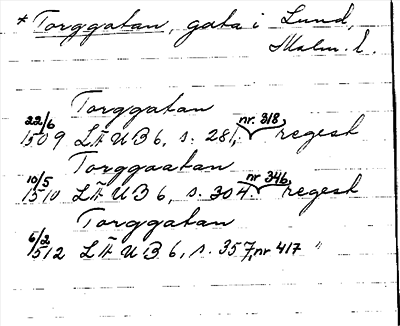 * Torggatan, gata i Lund,
Malm. l.
Torggatan
22/6 1509 LÄUB 6, s. 281, nr. 318, regest
Torggaatan
10/5 1510 LÄUB 6, s. 304 nr 346, regest
Torggatan
6/2 1512 LÄUB 6, s. 357, nr 417 "